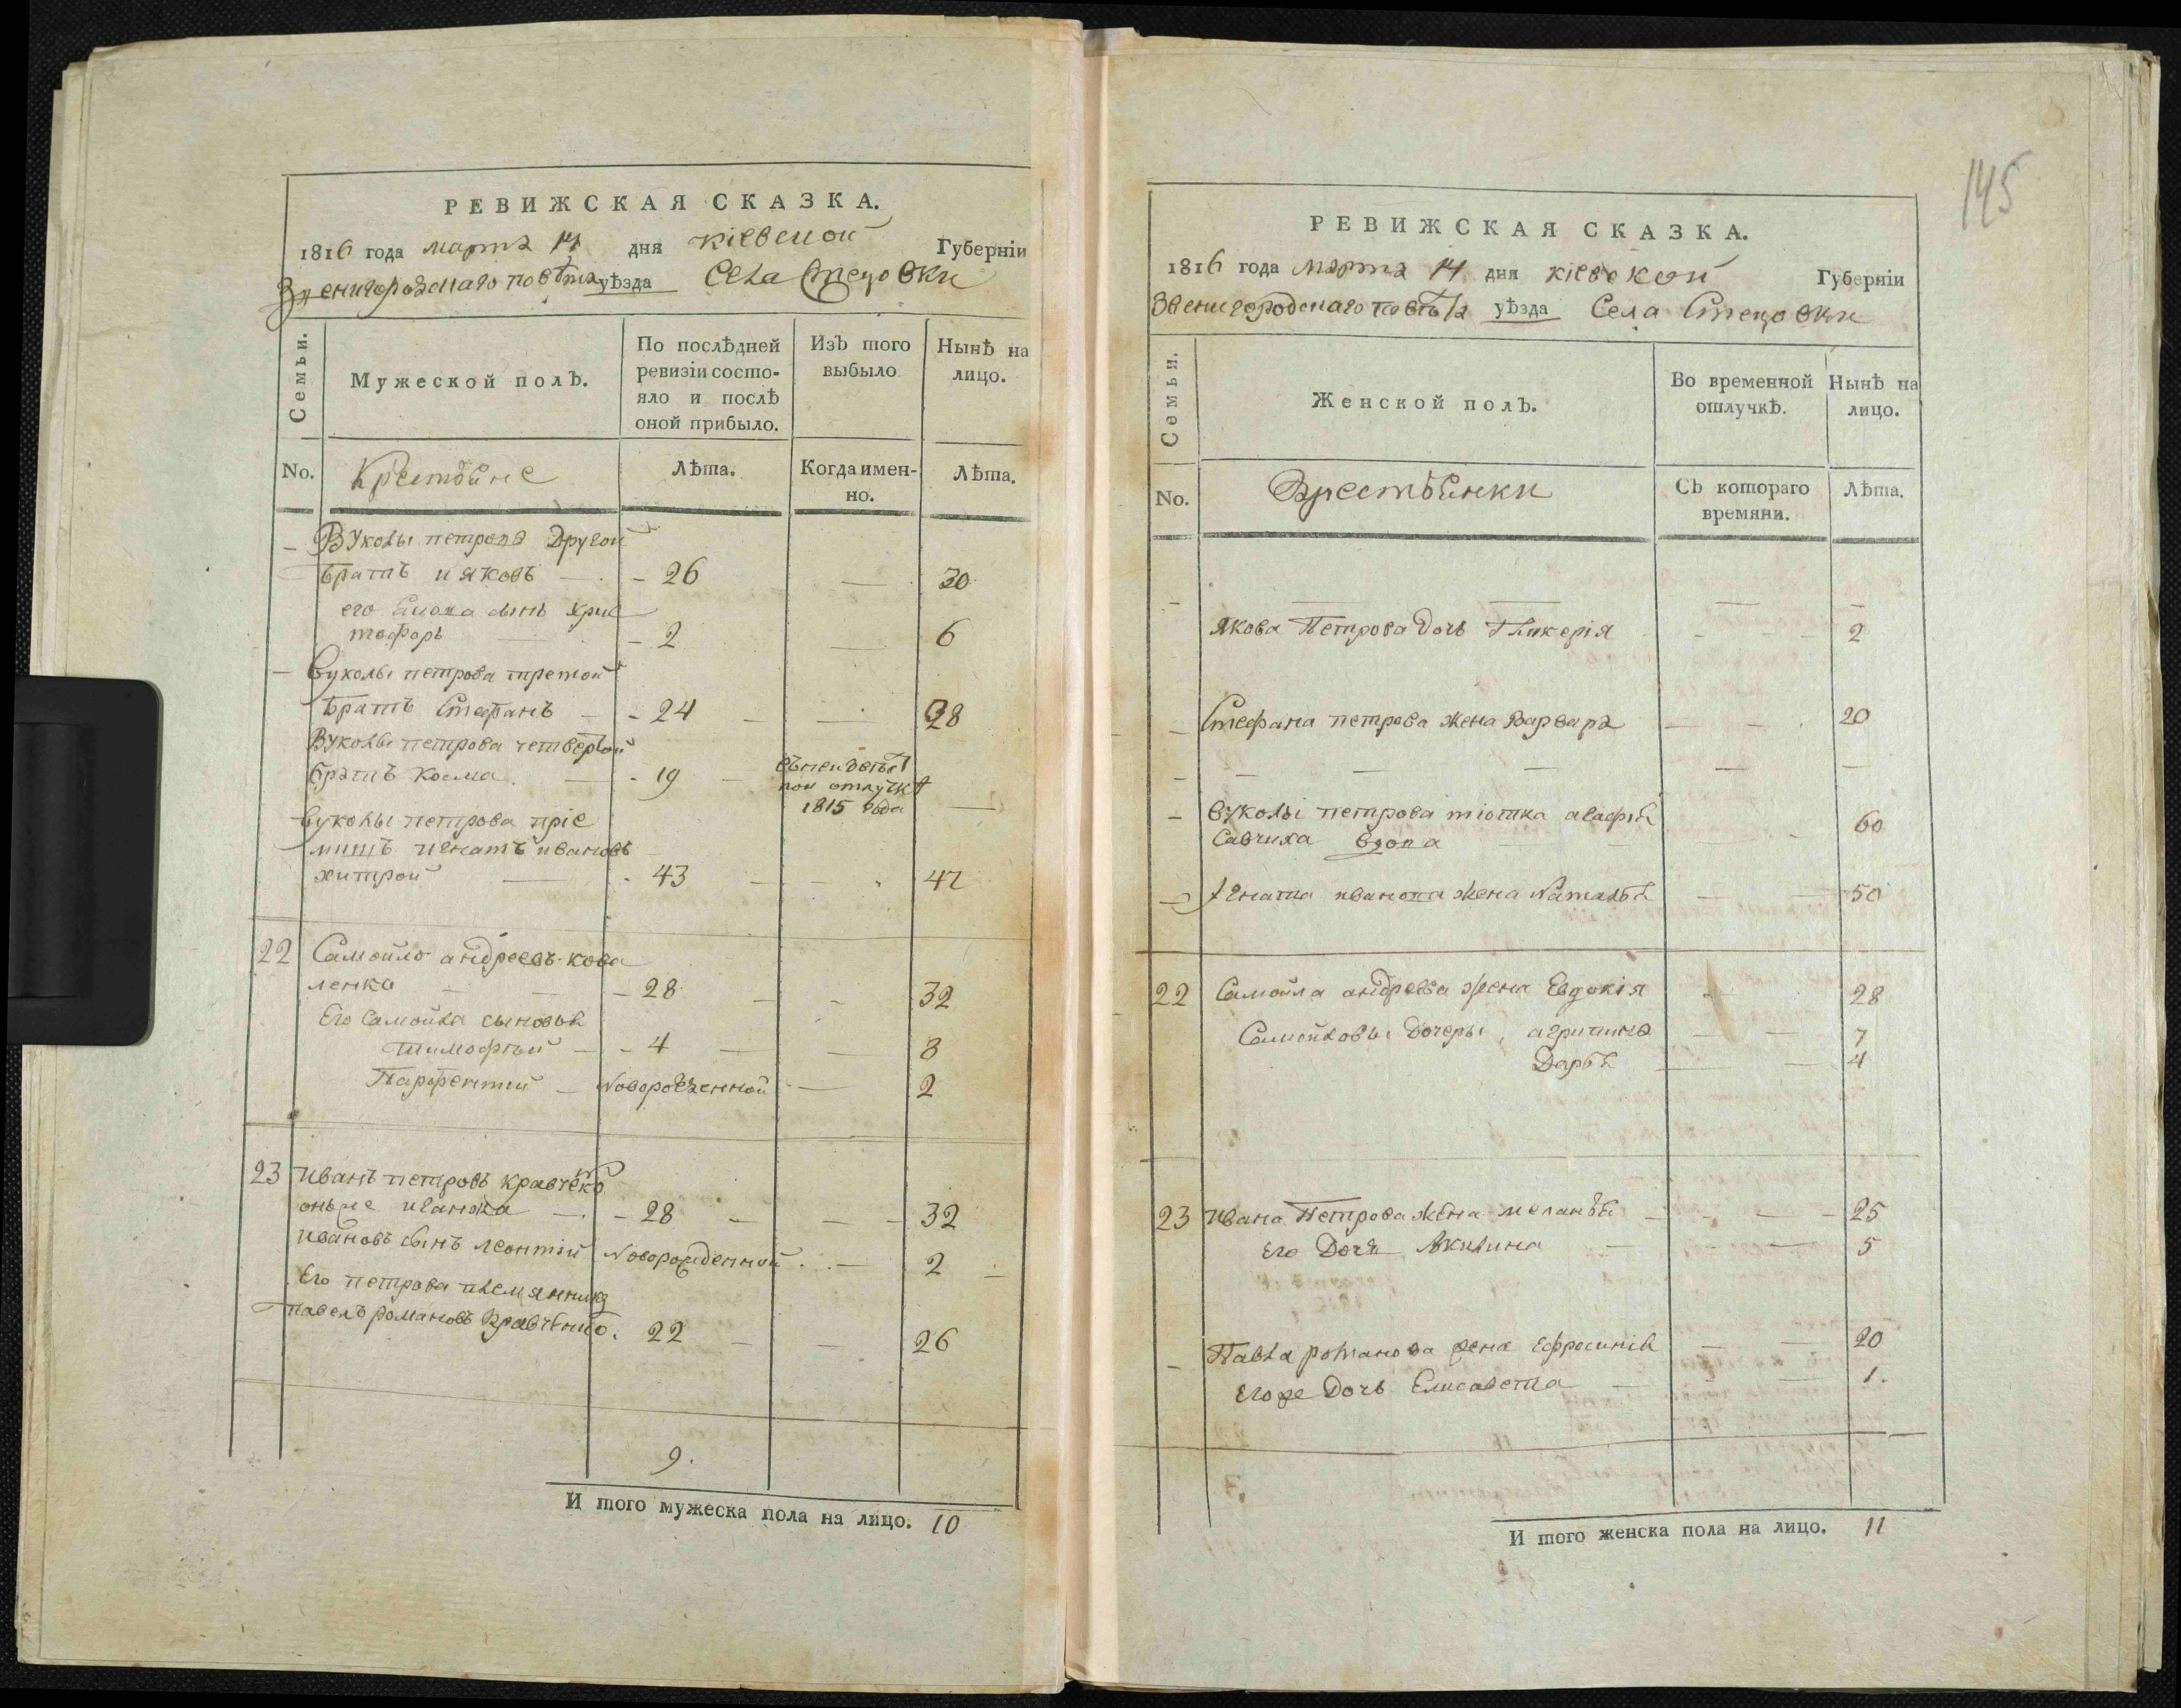 РЕВИЖСКАЯ СКАЗКА.
1816 года марта 14 дня кіевской Губерніи
Звенигородскаго повѣта уѣзда Села Стецовки
Семьи.
Мужеской полъ.
По послѣдней
ревизіи состо-
яло и послѣ
оной прибыло.
Изъ того
выбыло
Нынѣ на
лицо.
No.
Крестьяне
Лѣта.
Когда имен-
но.
Лѣта.
Вуколы петрова Другой
братъ иаковъ 26 30
его сынъ хрис
тофоръ 2 6
Вуколы петрова третой
братъ Стефанъ 24 28
Вуколы петрова четвертой
братъ Косма 19
отлучкѣ
1815 года
Вуколы петрова пріе
мишъ игнатъ ивановъ
хитрой 43 47
22 Самойло андреевъ кова
ленко 28 32
Его Самойла сыновья
Тимофтей 4 8
Парфентий Новорожденной 2
23 иванъ петровъ кравченко
28 32
ивановъ сынъ леонтій Новорожденной 2
Его петрова племянникъ
павелъ романовъ Кравченко. 22 26
9.
И того мужеска пола на лицо. 10
145
РЕВИЖСКАЯ СКАЗКА.
1816 года марта 14 дня кіевской Губерніи
Звенигородскаго повѣта уѣзда Села Стецовки
Семьи.
Женской полъ.
Во временной
отлучкѣ.
Нынѣ на
лицо.
No.
Крестьянки
Съ котораго
времяни.
Лѣта.
Якова Петрова дочь Гликерія 2
Стефана петрова жена Варвара 20
Вуколы петрова тіотка агафия
Савчиха вдова 60
Игната иванова жена Наталья 50
22 Самойла андреева жена Евдокія 28
Самойловы Дочеры, агрипина 7
Дарья 4
23 ивана Петрова жена меланья 25
Его Дочь Акилина 5
Павла романова жена Ефросинія 20
Его же Дочь Елисавета 1.
И того женска пола на лицо. 11